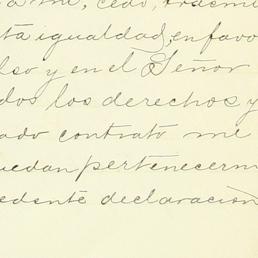 cedo,
igualdad, en favo
y en el Señor
dos los derechos y
ado contrato me
uedan pertenecerm
edente declaración